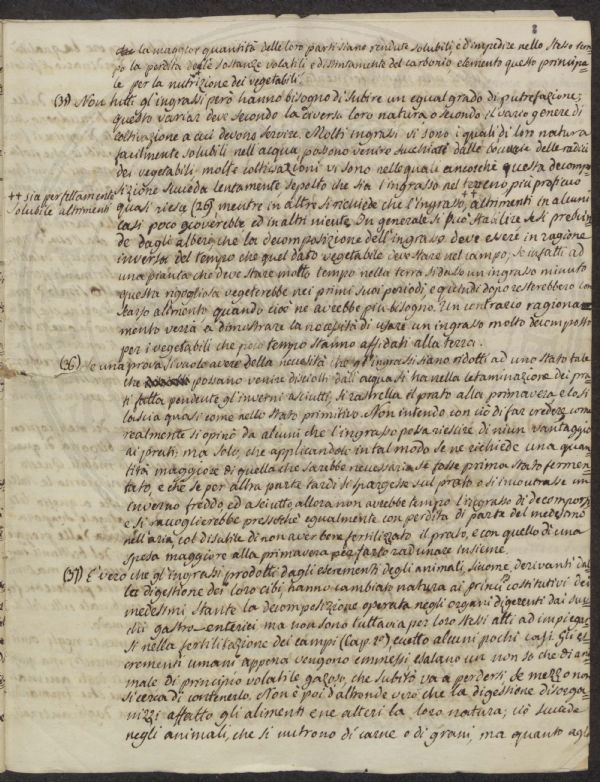 8
che la maggior quantità delle loro parti siano rendute solubili, e d'impedire nello stesso tem-
po la perdita delle sostanze volatili e distintamente del carbonio elemento questo principa-
le per la nutrizione dei vegetabili.
(35) Non tutti gl'ingrassi però hanno bisogno di subire un egual grado di putrefazione;
questo variar deve secondo la diversa loro natura o secondo il vario genere di
coltivazione a cui devono servire. Molti ingrassi vi sono i quali di lor natura
facilmente solubili nell'acqua, possono venire succhiati dalle boccucie delle radici
dei vegetabili, molte coltivazioni vi sono nelle quali ancorchè questa decompo-
sizione succeda lentamente sepolto che sia l'ingrasso nel terreno più proficuo
++ sia perfettamente
solubile altrimenti
quasi riesce (26) mentre in altre si richiede che l'ingrasso ++ altrimenti in alcuni
casi poco gioverebbe ed in altri niente. In generale si può stabilire se si prescin-
de dagli alberi, che la decomposizione dell'ingrasso deve essere in ragione
inversa del tempo che quel dato vegetabile deve stare nel campo; se infatti ad
una pianta che deve stare molto tempo nella terra si dasse un ingrasso minuto
questa rigogliosa vegeterebbe nei primi suoi periodi, e quindi dopo resterebbero con
scarso alimento quando cioè ne avrebbe più bisogno. Un contrario ragiona-
mento verrà a dimostrare la necessità di usare un ingrasso molto decomposto
per i vegetabili che poco tempo stanno affidati alla terra.
(36) Se una prova si vuole avere della necessità che gl'ingrassi siano ridotti ad uno stato tale
che possano venire disciolti dall'acqua si ha nella letaminazione dei pra-
ti fatta pendente gl'inverni asciutti, si rastrella il prato alla primavera e lo si
lascia quasi come nello stato primitivo. Non intendo con ciò di far credere come
realmente si opinò da alcuni che l'ingrasso possa riescire di niun vantaggio
ai prati; ma solo, che applicandolo in tal modo se ne richiede una quan-
tità maggiore di quella che sarebbe necessaria se fosse prima stato fermen-
tato, e che se per altra parte tardi si spargesse sul prato e si incontrasse un
inverno freddo, ed asciutto, allora non avrebbe tempo l'ingrasso di decomporsi
e si raccoglierebbe pressochè egualmente con perdita di parte del medesimo
nell'aria, col disutile di non aver bene fertilizzato il prato, e con quello di una
spesa maggiore alla primavera per farlo radunare insieme.
(37) E' vero che gl'ingrassi prodotti dagli escrementi degli animali, siccome derivanti dal-
la digestione dei loro cibi, hanno cambiato natura ai principj costitutivi dei
medesimi stante la decomposizione operata negli organi digerenti dai suc-
chi gastro-enterici ma non sono tuttavia per loro stessi atti ad impiegar-
si nella fertilizzazione dei campi (Cap. 2º), eccetto alcuni pochi casi. Gli es-
crementi umani appena vengono emmessi esalano un non so che di ani-
male di principio volatile gazoso, che subito va a perdersi se mezzo non
si cerca di contenerlo. Non è poi d'altronde vero che la digestione disorga-
nizzi affatto gli alimenti e ne alteri la loro natura; ciò succede
negli animali, che si nutrono di carne o di grani, ma quanto agli